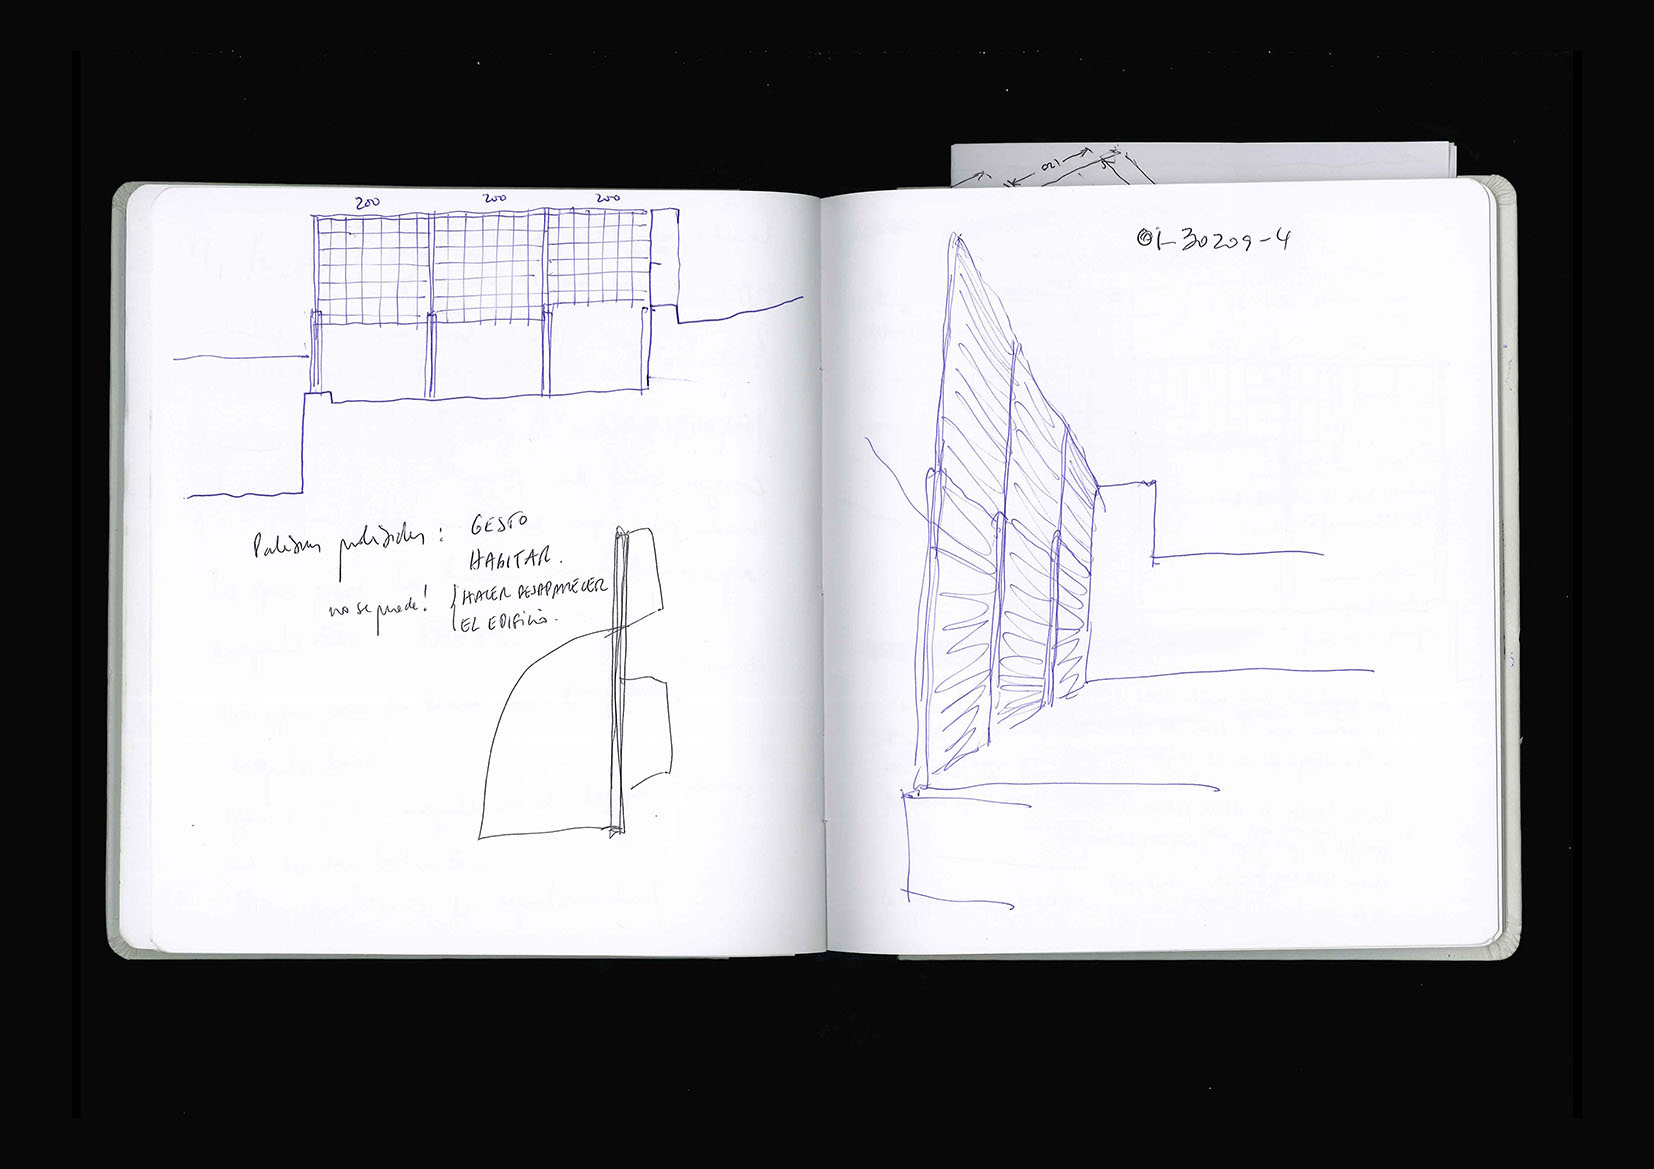 200 200 200
120
Palabras prohibidas : GESTO
HABITAR.
no se puede! { HACER DESAPARECER
EL EDIFICIO.